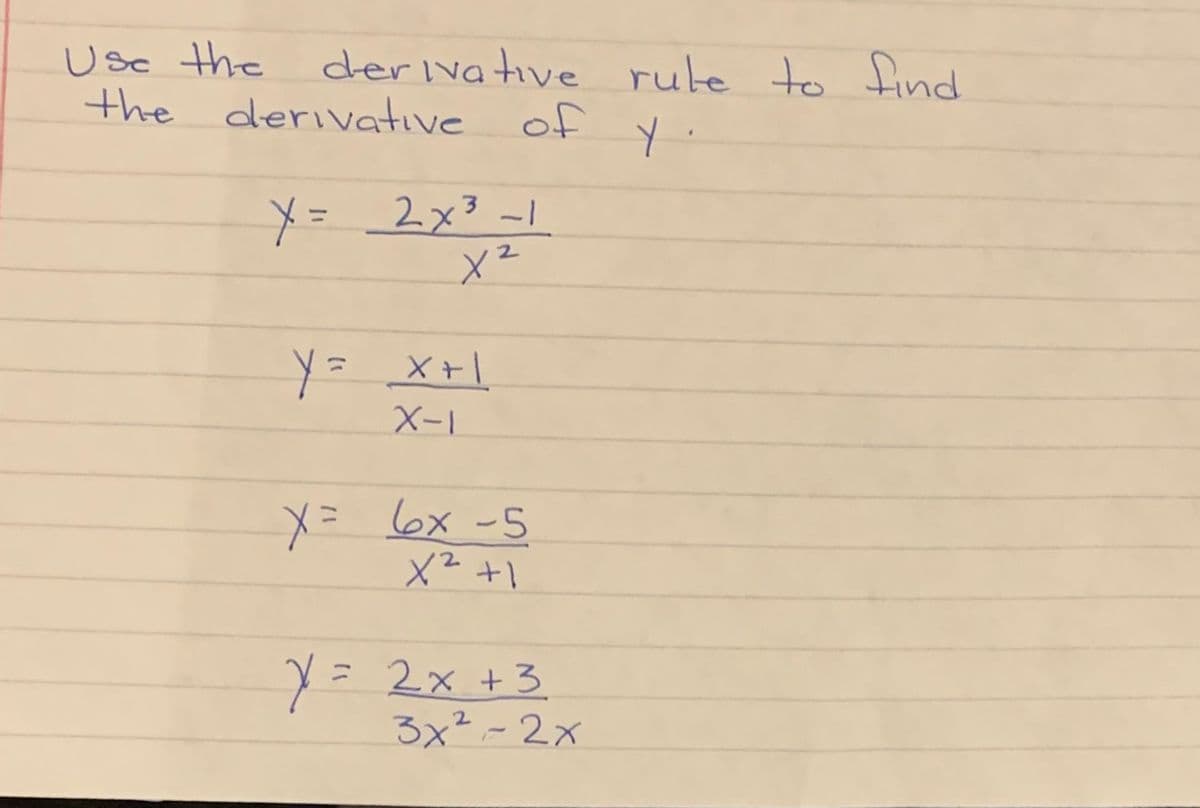 Use the derivative rule to find
the derivative of y.
y = 2x³ -1
x²
y = x+1
x-1
y = 6x -5
x² +1
y = 2x +3
3x² - 2x